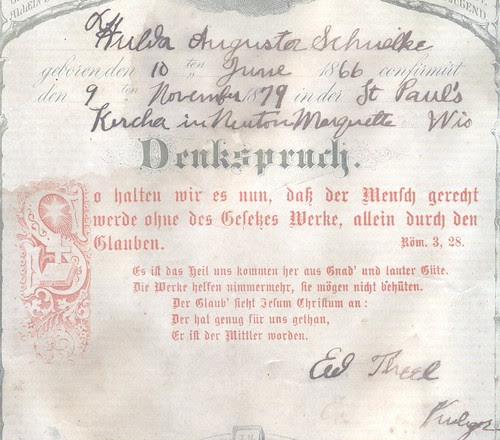 Hulda Augusta Schmelke
geboren den 10 ten June 1866 confirmirt
den 9 ten November 1879 in der St Paul's
Kercha in Neuton Marquette Wis
Denkspruch.
So halten wir es nun, daß der Mensch gerecht
werde ohne des Gesetzes Werke, allein durch den
Glauben. Röm. 3, 28.
Es ist das Heil uns kommen her aus Gnad' und lauter Güte.
Die Werke helfen nimmermehr, sie mögen nicht behüten.
Der Glaub' sieht Jesum Christum an:
Der hat genug für uns gethan,
Er ist der Mittler worden.
Ed Theel